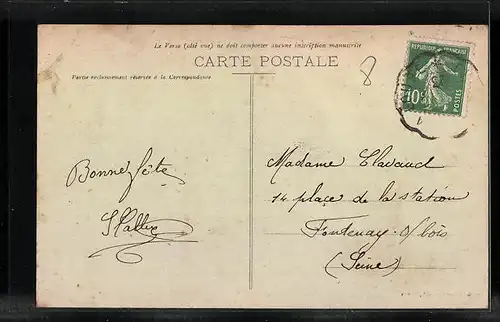 Le Verso (côté vue) ne doit comporter aucune inscription manuscrite
CARTE POSTALE
Partie exclusivement réservée à la Correspondance
8
REPUBLIQUE FRANÇAISE
10
POSTES
Bonne fête
Madame Clavaud
14 place de la station
Fontenay s/ bois
(Seine)